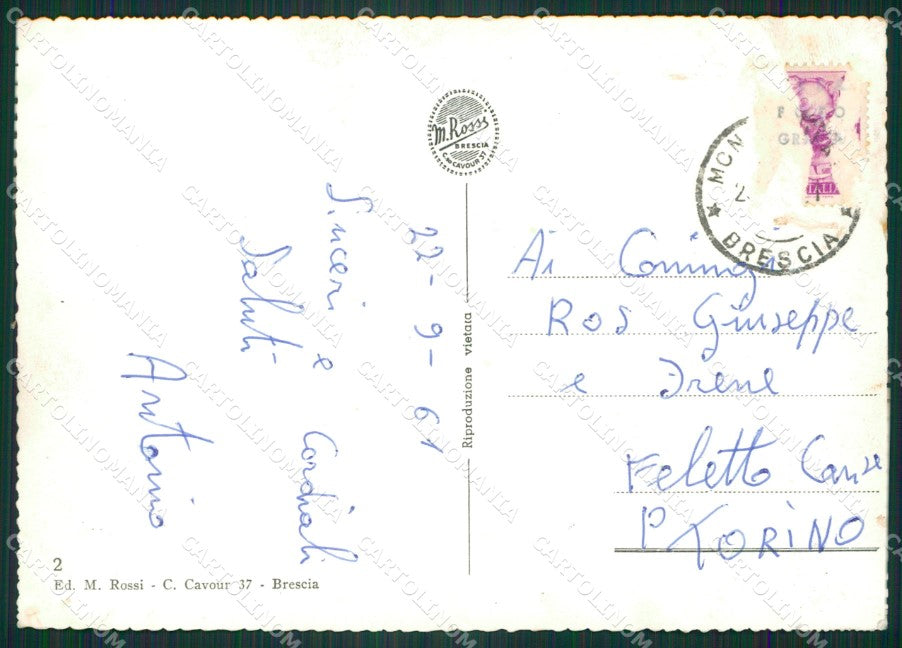 M. Rossi
BRESCIA
C.so CAVOUR 37
FOTO
GR
ITALIA
MCN
BRESCIA
22-9-61
Sinceri e Cordiali
Saluti
Antonio
Riproduzione vietata
Ai Coniugi
Ros Giuseppe
e Irene
Feletto Canse
P TORINO
2
Ed. M. Rossi - C. Cavour 37 - Brescia
CARTOLINOMANIA